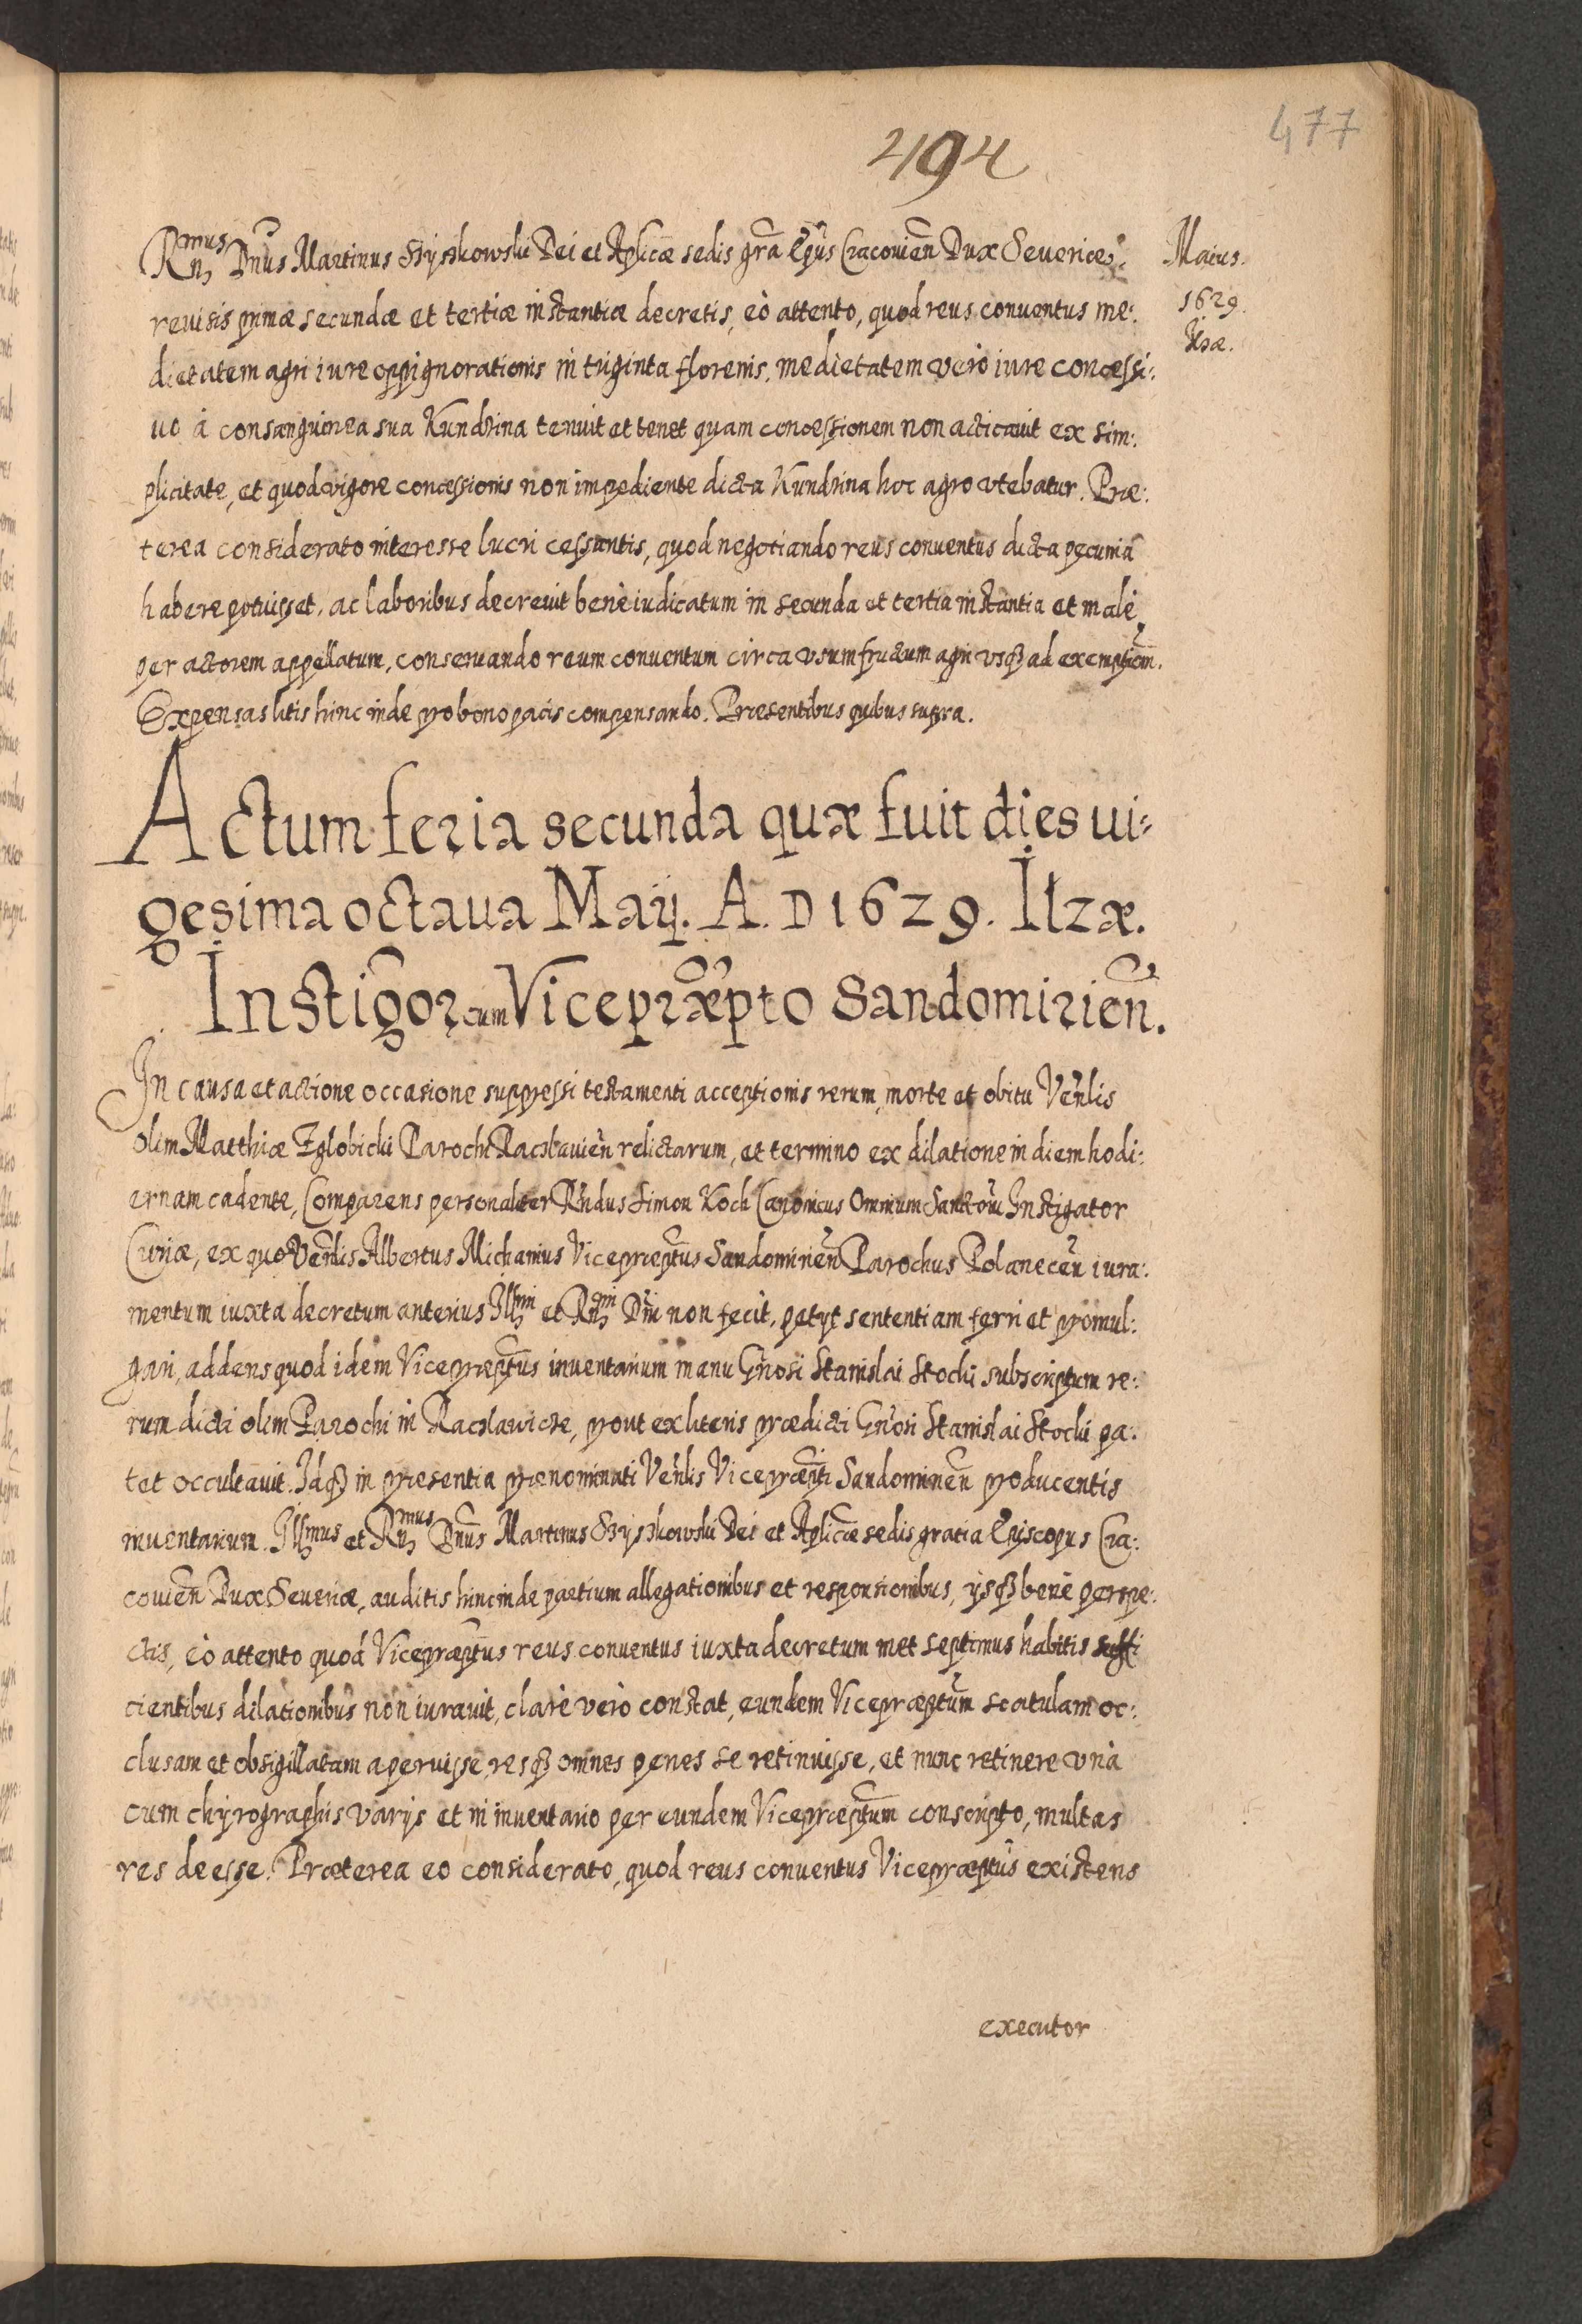 477
494
Rñmus Dñus Martinus Szyszkowski Dei et Aplicæ sedis grã Epũs Cracouieñ Dux Seueriæ,
Maius.
1629.
Ilzæ.
reuisis primæ secundæ et tertiæ instantiæ decretis, eò attento, quod reus conuentus me:
dietatem agri iure oppignorationis in triginta florenis, medietatem verò iure concessi:
uo à consanguinea sua Kundzina tenuit et tenet quam concessionem non acticauit ex sim:
plicitate, et quod vigore concessionis non impediente dicta Kundzina hoc agro vtebatur. Præ:
terea considerato interesse lucri cessantis, quod negotiando reus conuentus dicta pecunia
habere potuisset, ac laboribus decreuit benè iudicatum in secunda et tertia instantia et malè
per actorem appellatum, conseruando reum conuentum circa vsumfructum agri vsq ad exemptiom̃.
Expensas litis hinc inde pro bono pacis compensando. Præsentibus quibus supra.
Actum feria secunda quæ fuit dies ui:
gesima octaua Maij. A. D 1629. Ilzæ.
Instigõr cum Vicepræp̃to Sandomirieñ.
In causa et actione occasione suppressi testamenti acceptionis rerum, morte et obitu Veñlis
olim Matthiæ Zglobicki Parochi Raclauieñ relictarum, et termino ex dilatione in diem hodi:
ernam cadente, Comparens personaliter Rñdus Simon Koch Canonicus Omnium Sanctorũ Instigator
Curiæ, ex quo Veñlis Albertus Michanius Vicepræptũs Sandomirieñ Parochus Polaneceñ iura:
mentum iuxta decretum anterius Illm̃i et Rm̃i Dñi non fecit, petijt sententiam ferri et promul:
gari, addens quod idem Vicepræptũs inuentarium manu Gñosi Stanislai Stocki subscriptum re:
rum dicti olim Parochi in Raclawicze, prout ex literis prædicti Gñosi Stanislai Stocki pa:
tet occultauit. Idq in præsentia prænominati Veñlis Vicepræp̃ti Sandomirieñ producentis
inuentarium. Illm̃us et Rñmus Dñus Martinus Szyszkowski Dei et Aplicæ sedis gratia Episcopus Cra:
couieñ Dux Seueriæ, auditis hincinde partium allegationibus et responsionibus, ijsq benè perspe:
ctis, eò attento quod Vicepræptũs reus conuentus iuxta decretum met septimus habitis suffi
cientibus dilationibus non iurauit, clarè verò constat, eundem Vicepræptũm scatulam oc:
clusam et obsigillatam aperuisse, resq omnes penes se retinuisse, et nunc retinere vnà
cum chyrographis varijs et in inuentario per eundem Vicepræptũm conscripto, multas
res deesse. Præterea eo considerato, quod reus conuentus Vicepræptũs existens
executor